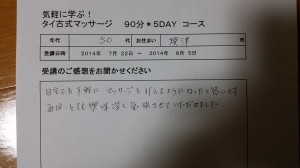 気軽に学ぶ！
タイ古式マッサージ 90分*5DAY コース
年代 50代 お住まい 焼津
受講日時 2014年 7月 22日 ～ 2014年 8月 5日
受講のご感想をお聞かせください
自宅でも手軽に マッサージを行えるようになったと思います
毎回、とても興味深く勉強させていただきました